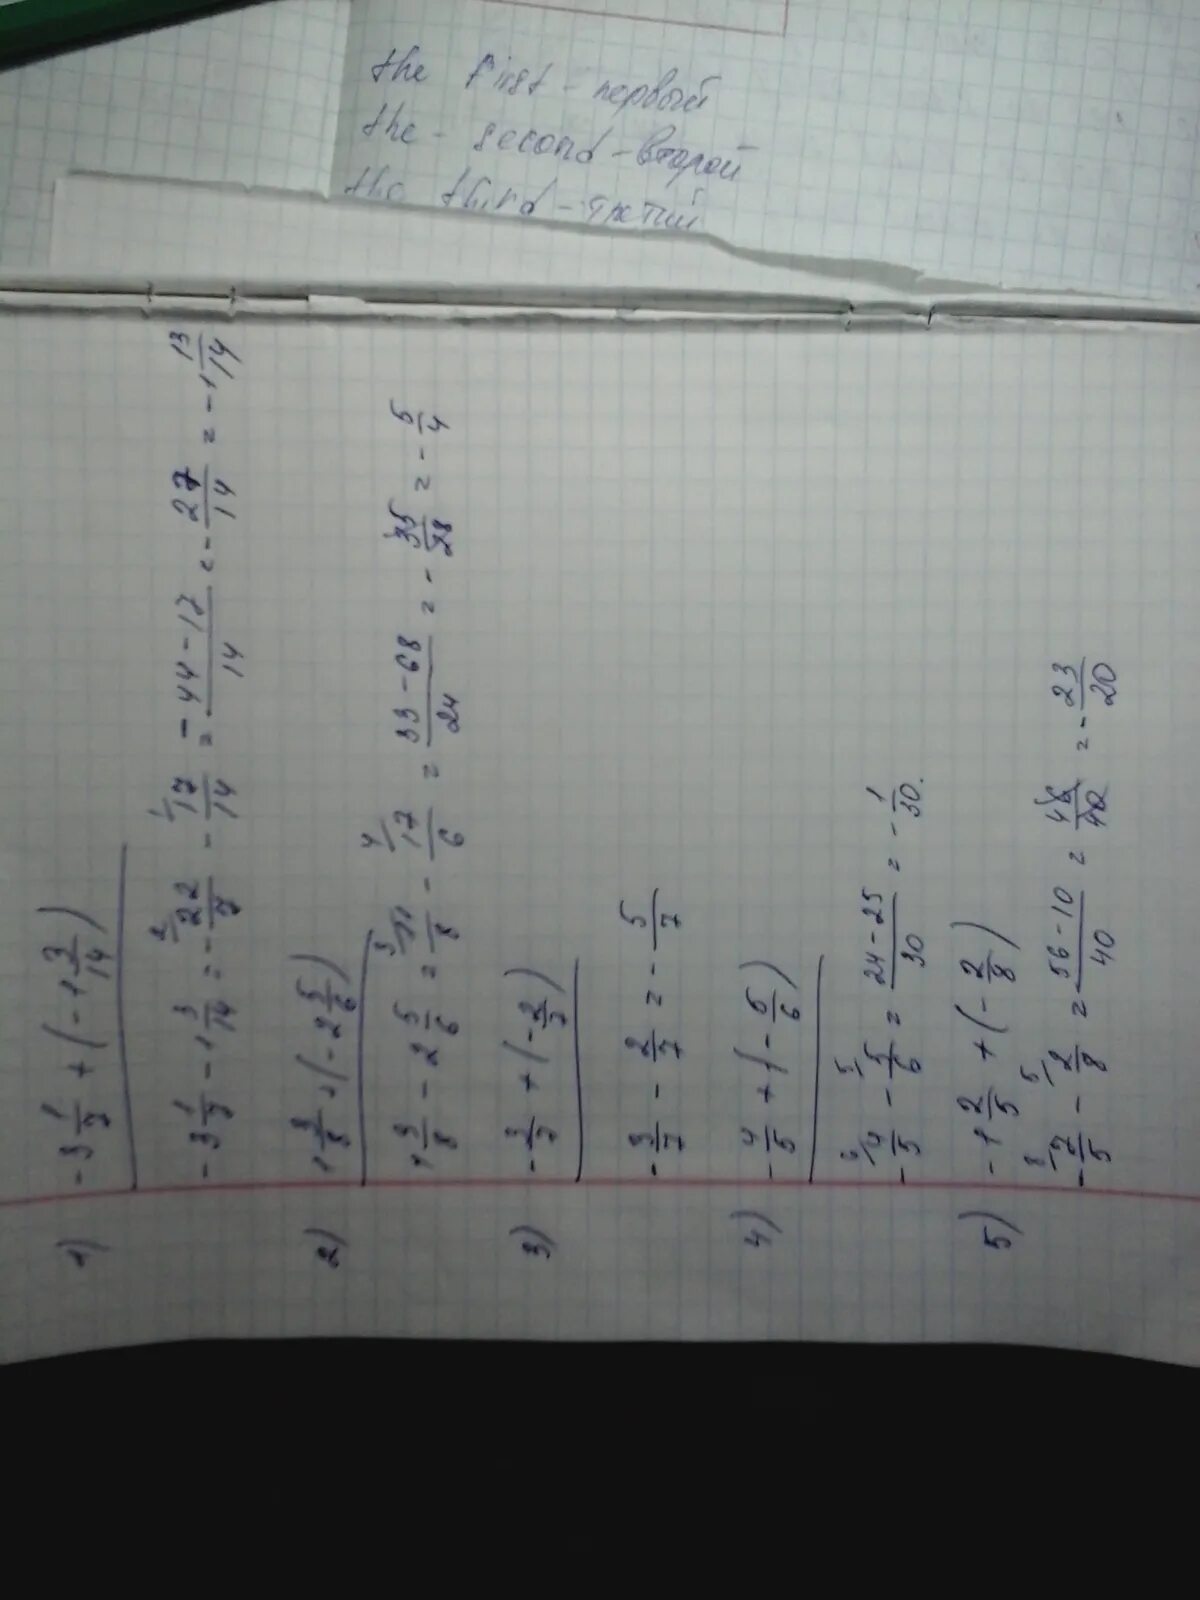 the first - первый
the - second - второй
the third - третий
1) -3 1/7 + (-1 3/14)
-3 1/7 - 1 3/14 = - 22/7 - 17/14 = - 44-17/14 = - 27/14 = -1 13/14
2) 1 3/8 + (-2 5/6)
1 3/8 - 2 5/6 = 11/8 - 17/6 = 33-68/24 = - 35/28 = - 5/4
3) - 3/7 + (- 2/7)
- 3/7 - 2/7 = - 5/7
4) - 4/5 + (- 5/6)
- 4/5 - 5/6 = 24-25/30 = - 1/30.
5) -1 2/5 + (- 2/8)
- 7/5 - 2/8 = 56-10/40 = 46/40 = - 23/20